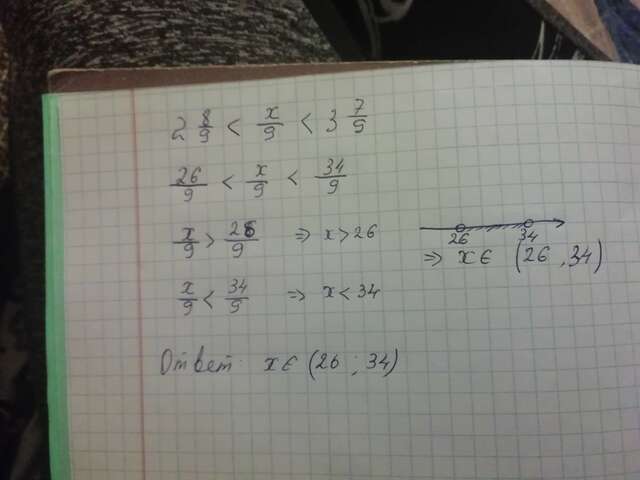 2 8/9 < x/9 < 3 7/9
26/9 < x/9 < 34/9
x/9 > 26/9 ⇒ x > 26
x/9 < 34/9 ⇒ x < 34
26 34
⇒ x ∈ (26 , 34)
Ответ: x ∈ (26 ; 34)